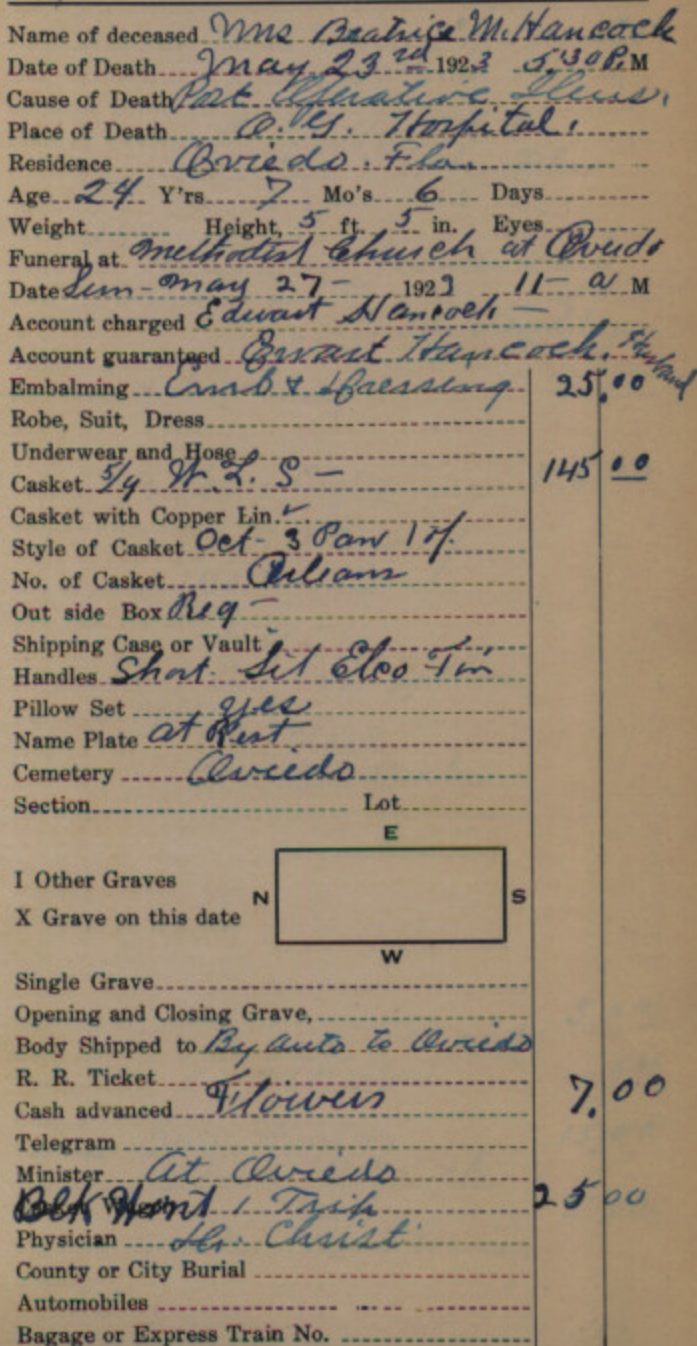 Name of deceased Mrs Beatrice M. Hancock
Date of Death May 23rd 1923 5:30 P.M
Cause of Death Post Operative Ileus.
Place of Death O. G. Hospital.
Residence Oviedo. Fla.
Age 24 Y'rs 7 Mo's 6 Days
Weight Height, 5 ft. 5 in. Eyes
Funeral at Methodist Church at Oviedo
Date Sun - May 27 - 1923 11 - a M
Account charged Edwart Hancock -
Account guaranteed Ewart Hancock. Husband
Embalming Emb & Dressing 25.00
Robe, Suit, Dress
Underwear and Hose
Casket 5/9 W. L. S - 145 00
Casket with Copper Lin.
Style of Casket Oct - 3 Pan
No. of Casket Orleans
Out side Box Reg -
Shipping Case or Vault
Handles Short Sil Elco Tin
Pillow Set yes
Name Plate at Rest
Cemetery Oviedo
Section Lot
E
I Other Graves
N S
X Grave on this date
W
Single Grave
Opening and Closing Grave,
Body Shipped to By auto to Oviedo
R. R. Ticket
Cash advanced Flowers 7.00
Telegram
Minister At Oviedo
1 Trip 25 00
Physician Dr. Christ
County or City Burial
Automobiles
Bagage or Express Train No.